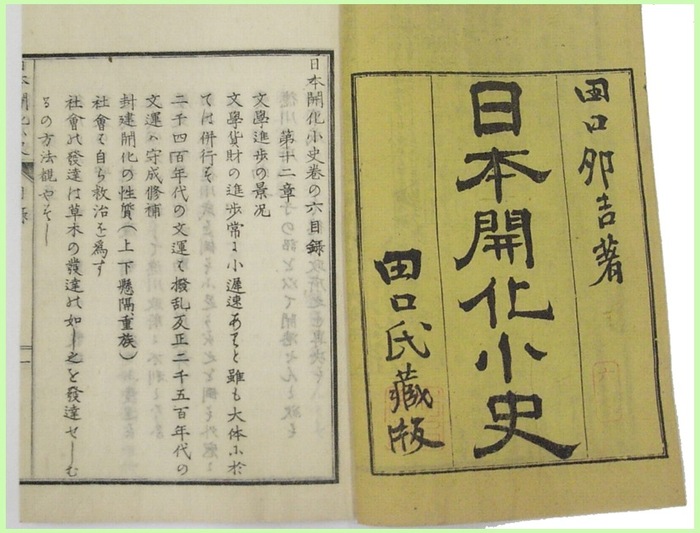 田口卯吉著
日本開化小史
田口氏藏版
日本開化小史卷の六目錄
第十二章
文學進歩の景况
文學貨財の進歩常に小遲速あると雖も大体に於
ては併行そ
二千四百年代の文運は撥乱反正二千五百年代の
文運ハ守成修補
封建開化の性質(上下懸隔重族)
社會は自ら救治を爲す
社會の發達は草木の發達の如し之を發達せしむ
るの方法